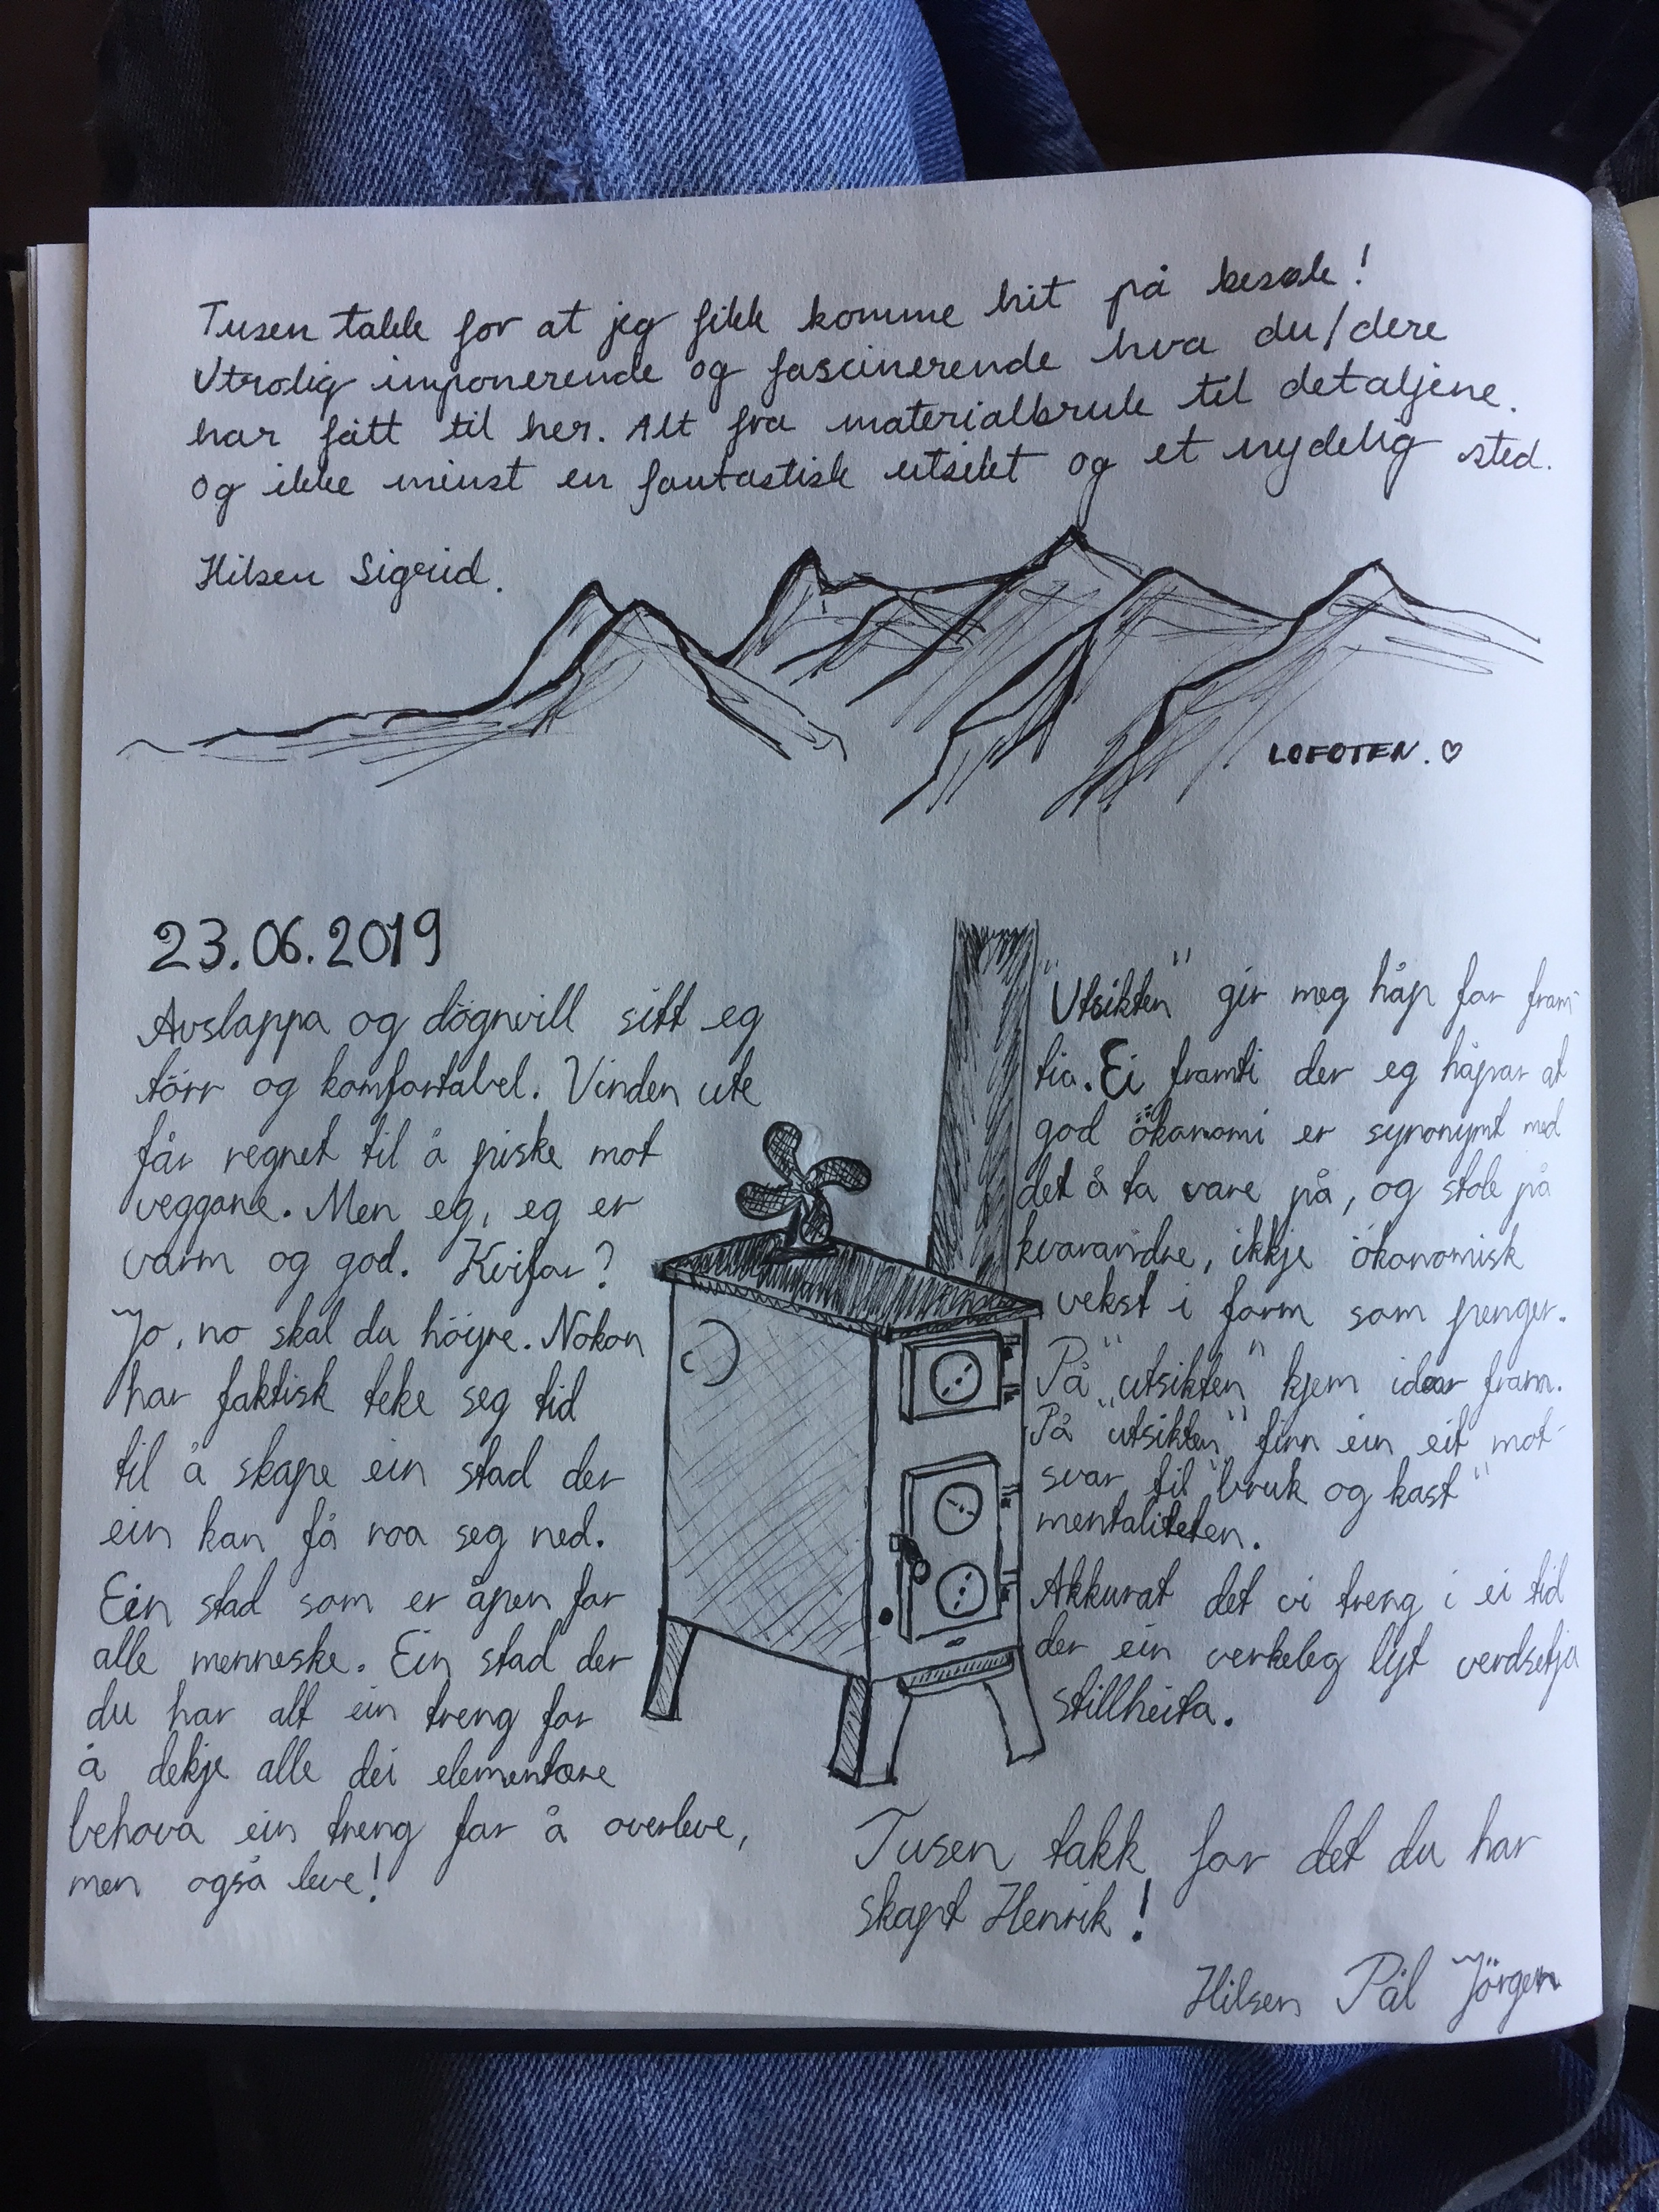 Tusen takk for at jeg fikk komme hit på besøk!
Utrolig imponerende og fascinerende hva du/dere
har fått til her. Alt fra materialbruk til detaljene.
og ikke minst en fantastisk utsikt og et nydelig sted.
Hilsen Sigrid.
LOFOTEN. ♡
23.06.2019
Avslappa og dögnvill sitt eg
törr og komfortabel. Vinden ute
får regnet til å piske mot
veggane. Men eg, eg er
varm og god. Kvifor?
Jo, no skal du höyre. Nokon
har faktisk teke seg tid
til å skape ein stad der
ein kan få roa seg ned.
Ein stad som er åpen for
alle menneske. Ein stad der
du har alt ein treng for
å dekje alle dei elementære
behova ein treng for å overleve,
men også leve!
"Utsikten" gir meg håp for fram-
tia. Ei framti der eg håpar at
god ökonomi er synonymt med
det å ta vare på, og stole på
kvarandre, ikkje ökonomisk
vekst i form som penger.
På "utsikten" kjem idear fram.
På "utsikten" finn ein eit mot-
svar til "bruk og kast"
mentaliteten.
Akkurat det vi treng i ei tid
der ein verkeleg lyt verdsetja
stillheita.
Tusen takk for det du har
skapt Henrik!
Hilsen Pål Jörgen